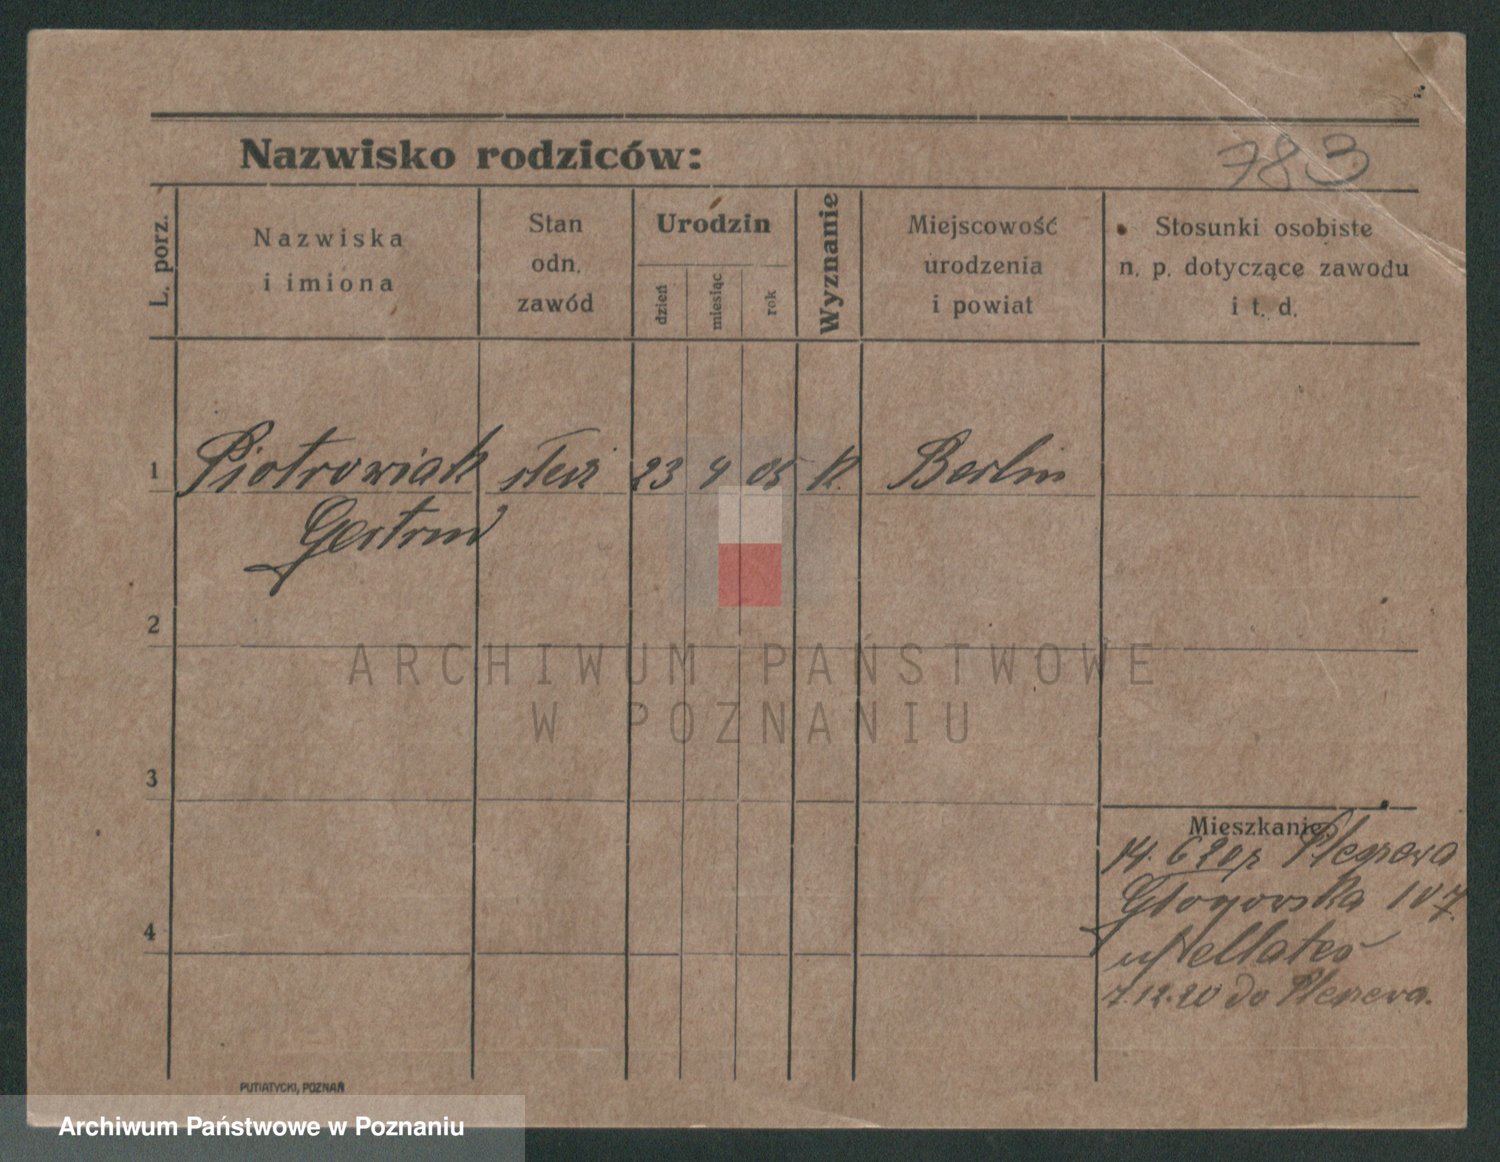 Nazwisko rodziców:
783
L. porz.
Nazwiska
i imiona
Stan
odn.
zawód
Urodzin
dzień
miesiąc
rok
Wyznanie
Miejscowość
urodzenia
i powiat
Stosunki osobiste
n. p. dotyczące zawodu
i t. d.
1 Piotrowiak 23 4 05 K. Berlin
Gertrud
2
ARCHIWUM PAŃSTWOWE
W POZNANIU
3
Mieszkanie
14. 6 20 z Pleszewa
Głogowska 107
u
4
7.12.20 do Pleszewa.
PUTIATYCKI, POZNAŃ
Archiwum Państwowe w Poznaniu